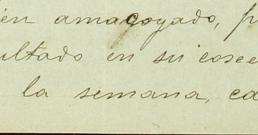 ién amacoyado, p
ultado en su cose
la semana, ca